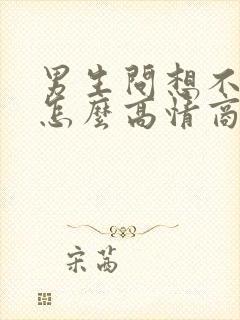 男生問想不
怎麼高情商
宋茜